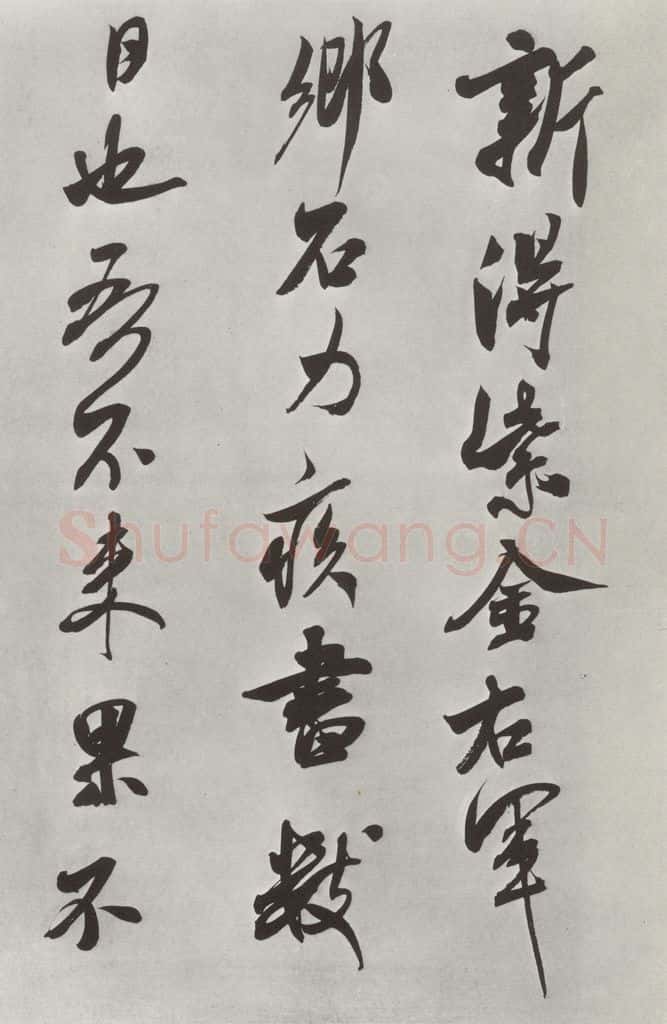 新得紫金右軍
鄉石力疾書數
日也吾不来果不
Shufawang.CN